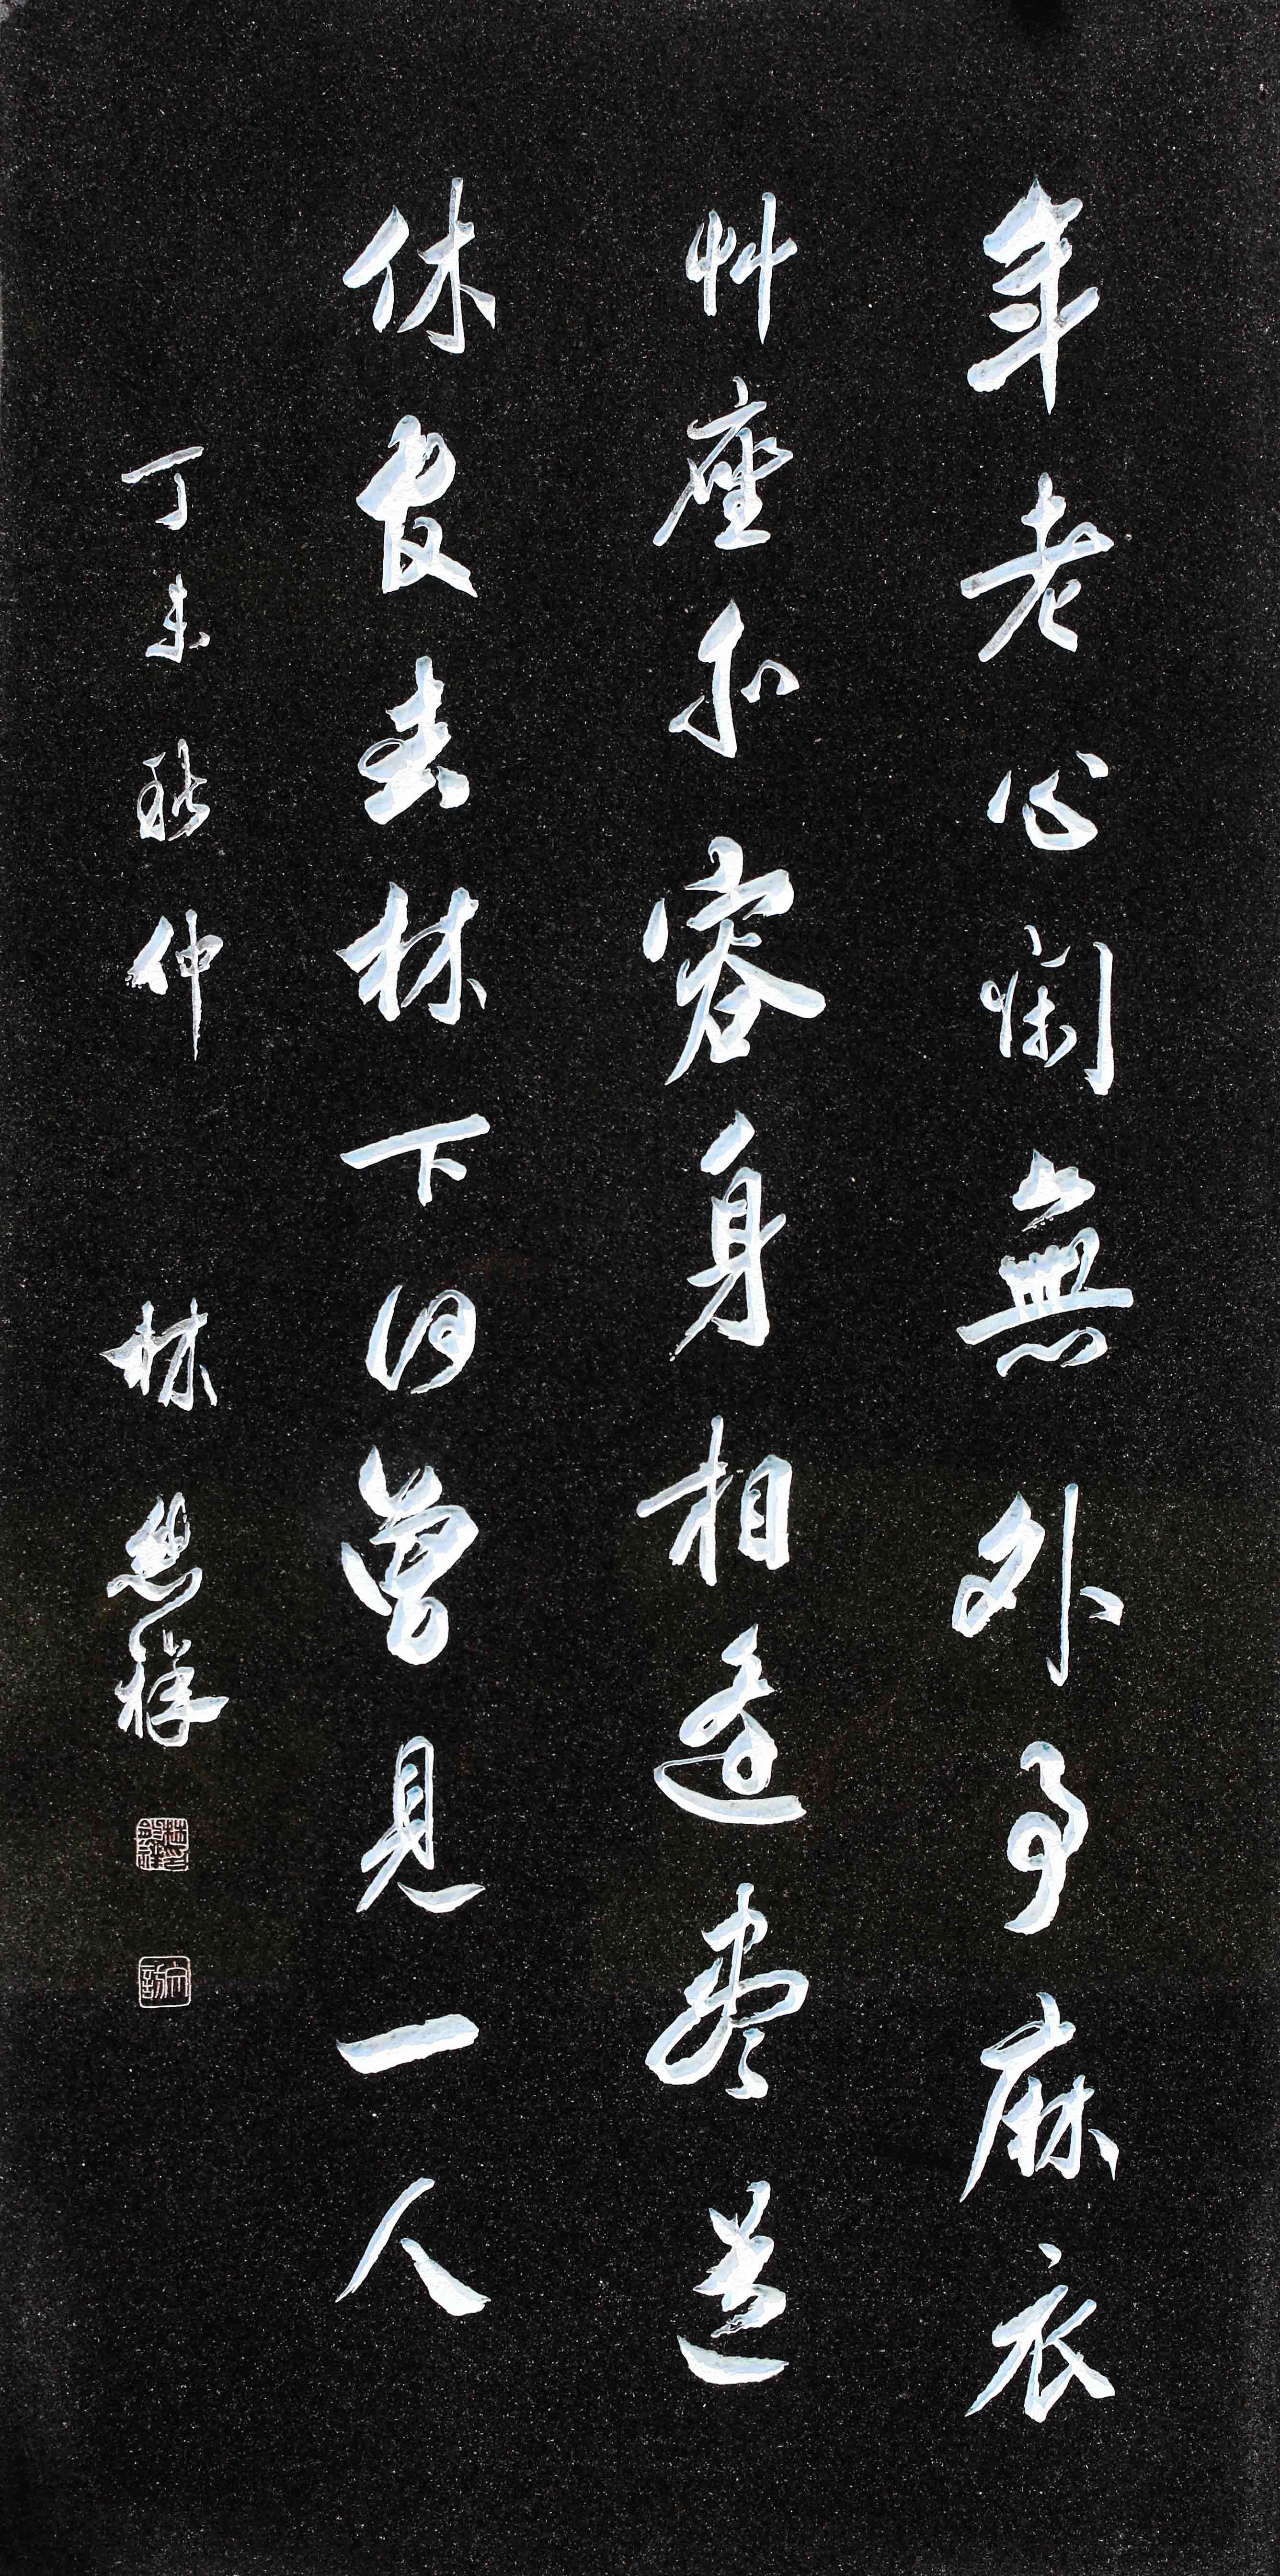 年老心閑無外事麻衣
艸座亦容身相逢盡道
休官去林下何曾見一人
丁未秋仲 林 祥